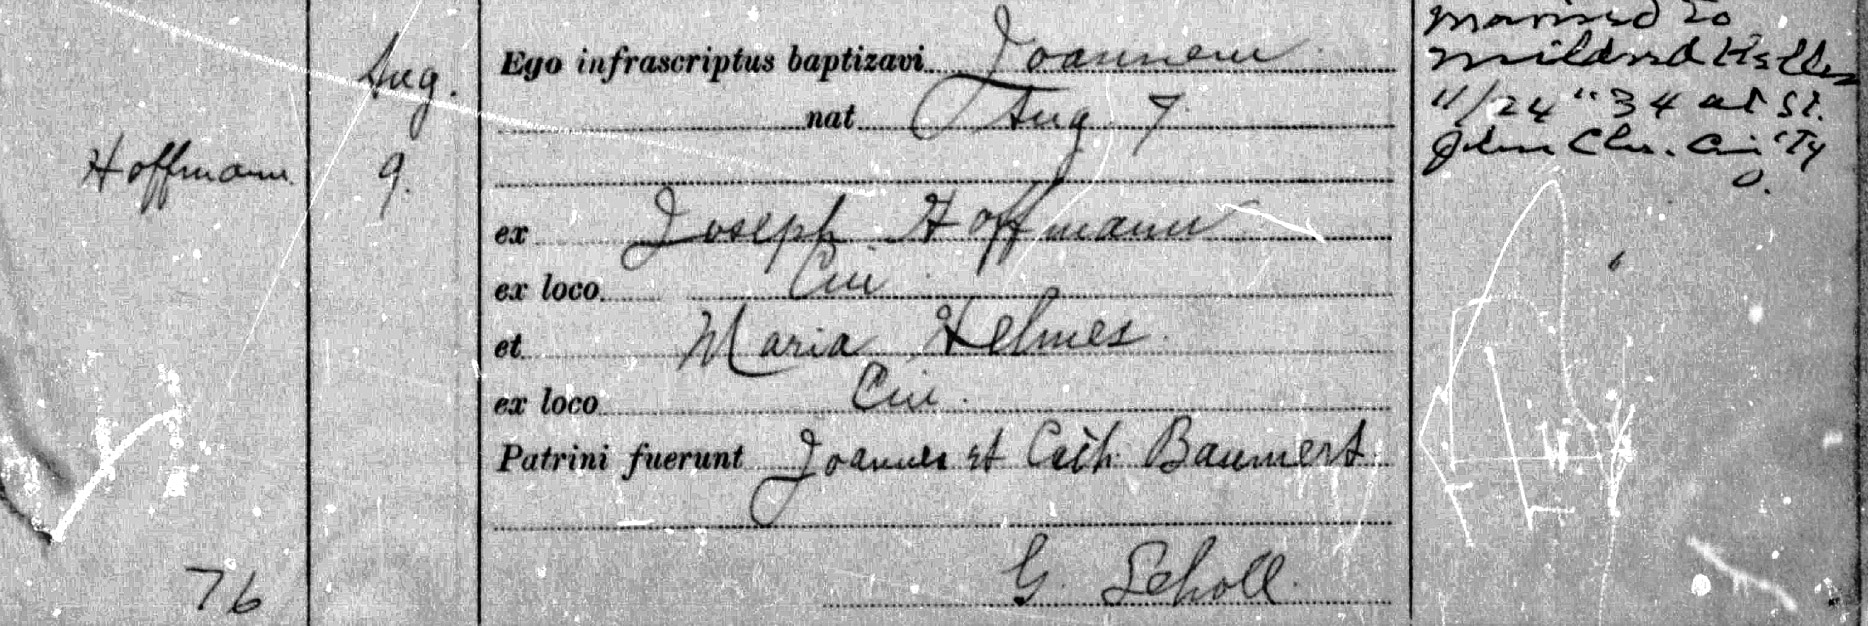 Hoffmann
76
Aug.
9.
Ego infrascriptus baptizavi Joannem
nat Aug 7
ex Joseph Hoffmann
ex loco Cin
et Maria Helmes
ex loco Cin.
Patrini fuerunt Joannes et Cath Baumert
G. Scholl.
married to
Mildred
11/24 "34 at St.
John Chu. Cin'ty
O.